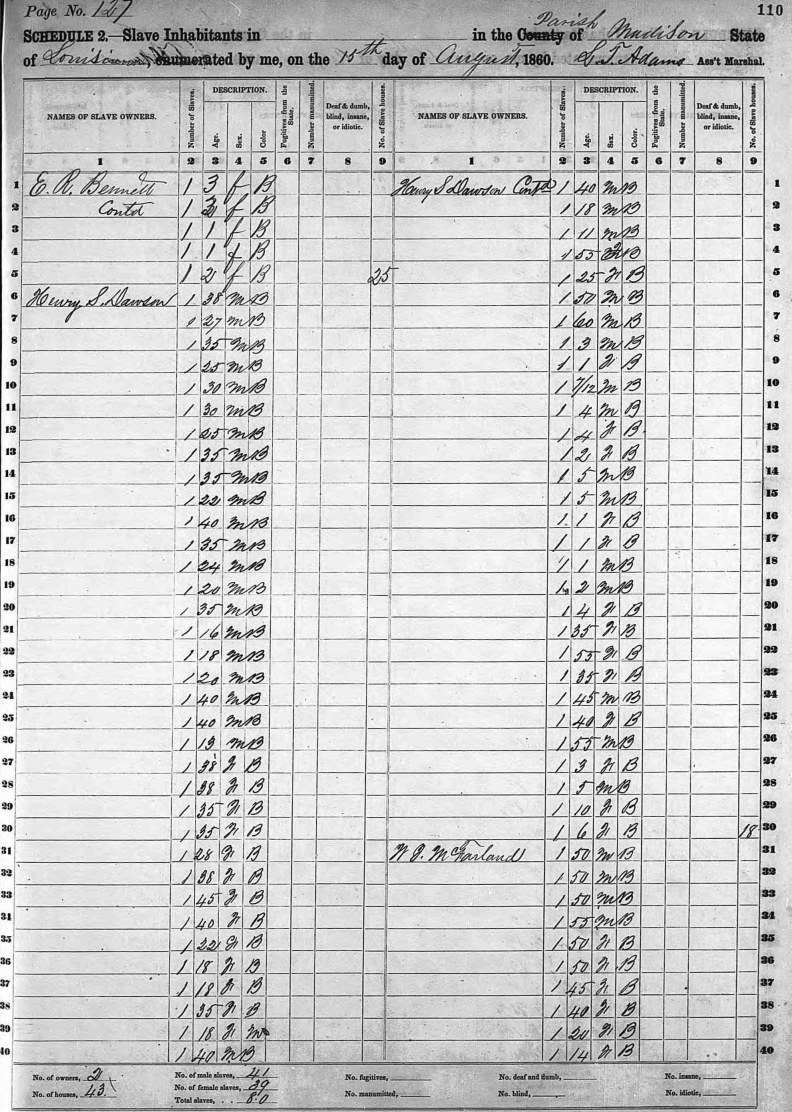 Page No. 127
110
SCHEDULE 2.—Slave Inhabitants in in the County Parish of Madison State
of Louisiana, enumerated by me, on the 15th day of August, 1860. L T Adams Ass't Marshal.
NAMES OF SLAVE OWNERS. Number of Slaves. DESCRIPTION. Age. Sex. Color. Fugitives from the State. Number manumitted. Deaf & dumb, blind, insane, or idiotic. No. of Slave houses. NAMES OF SLAVE OWNERS. Number of Slaves. DESCRIPTION. Age. Sex. Color. Fugitives from the State. Number manumitted. Deaf & dumb, blind, insane, or idiotic. No. of Slave houses.
1 2 3 4 5 6 7 8 9 1 2 3 4 5 6 7 8 9
1 E. R. Bennett 1 3 f B Henry S Dawson Contd 1 40 M B 1
2 Contd 1 f B 1 18 M B 2
3 1 1 f B 1 11 M B 3
4 1 1 f B 1 55 B 4
5 1 2 f B 25 1 25 F B 5
6 Henry S. Dawson 1 38 M B 1 50 M B 6
7 1 27 M B 1 60 M B 7
8 1 35 M B 1 3 M B 8
9 1 25 M B 1 1 F B 9
10 1 30 M B 1 7/12 M B 10
11 1 30 M B 1 4 M B 11
12 1 25 M B 1 4 F B 12
13 1 35 M B 1 2 F B 13
14 1 35 M B 1 5 M B 14
15 1 22 M B 1 5 M B 15
16 1 40 M B 1 1 F B 16
17 1 35 M B 1 1 F B 17
18 1 24 M B 1 1 M B 18
19 1 20 M B 1 2 M B 19
20 1 35 M B 1 4 F B 20
21 1 16 M B 1 35 F B 21
22 1 18 M B 1 55 F B 22
23 1 20 M B 1 35 F B 23
24 1 40 M B 1 45 M B 24
25 1 40 M B 1 40 F B 25
26 1 19 M B 1 55 M B 26
27 1 38 F B 1 3 F B 27
28 1 38 F B 1 5 M B 28
29 1 35 F B 1 10 F B 29
30 1 35 F B 1 6 F B 18 30
31 1 28 F B W J. McFarland 1 50 M B 31
32 1 38 F B 1 50 M B 32
33 1 45 F B 1 50 M B 33
34 1 40 F B 1 55 M B 34
35 1 22 F B 1 50 F B 35
36 1 18 F B 1 50 F B 36
37 1 18 F B 1 45 F B 37
38 1 35 F B 1 40 F B 38
39 1 18 F M 1 20 F B 39
40 1 40 M B 1 14 F B 40
No. of owners, 2 No. of male slaves, 41 No. fugitives, No. deaf and dumb, No. insane,
No. of houses, 43 No. of female slaves, 39 No. manumitted, No. blind, No. idiotic,
Total slaves, 80